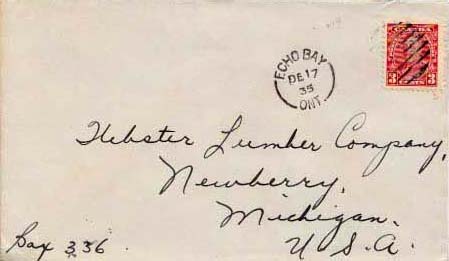 ECHO BAY
DE 17
35
ONT.
CANADA
3 CENTS 3
Webster Lumber Company,
Newberry,
Michigan.
U.S.A.
Box 336